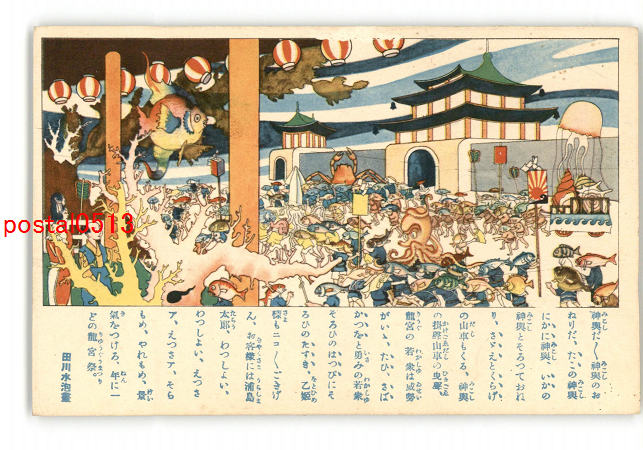 神輿だ〱神輿のお
ねりだ、たこの神輿
にかに神輿、いかの
神輿とそろつておね
り、さゞえとくらげ
の山車もくる、神輿
の掛聲山車の曳聲、
龍宮の若衆は威勢
がいゝ、たひ、さば
かつをと勇みの若衆
そろひのはつぴにそ
ろひのたすき、乙姫
樣もニコ〱ごきげ
ん、お客樣には浦島
太郎、わつしよい、
わつしよい、えつさ
ア、えつさア、そら
もめ、やれもめ、景
氣をつけろ、年に一
どの龍宮祭。
田川水泡畫
postal0513